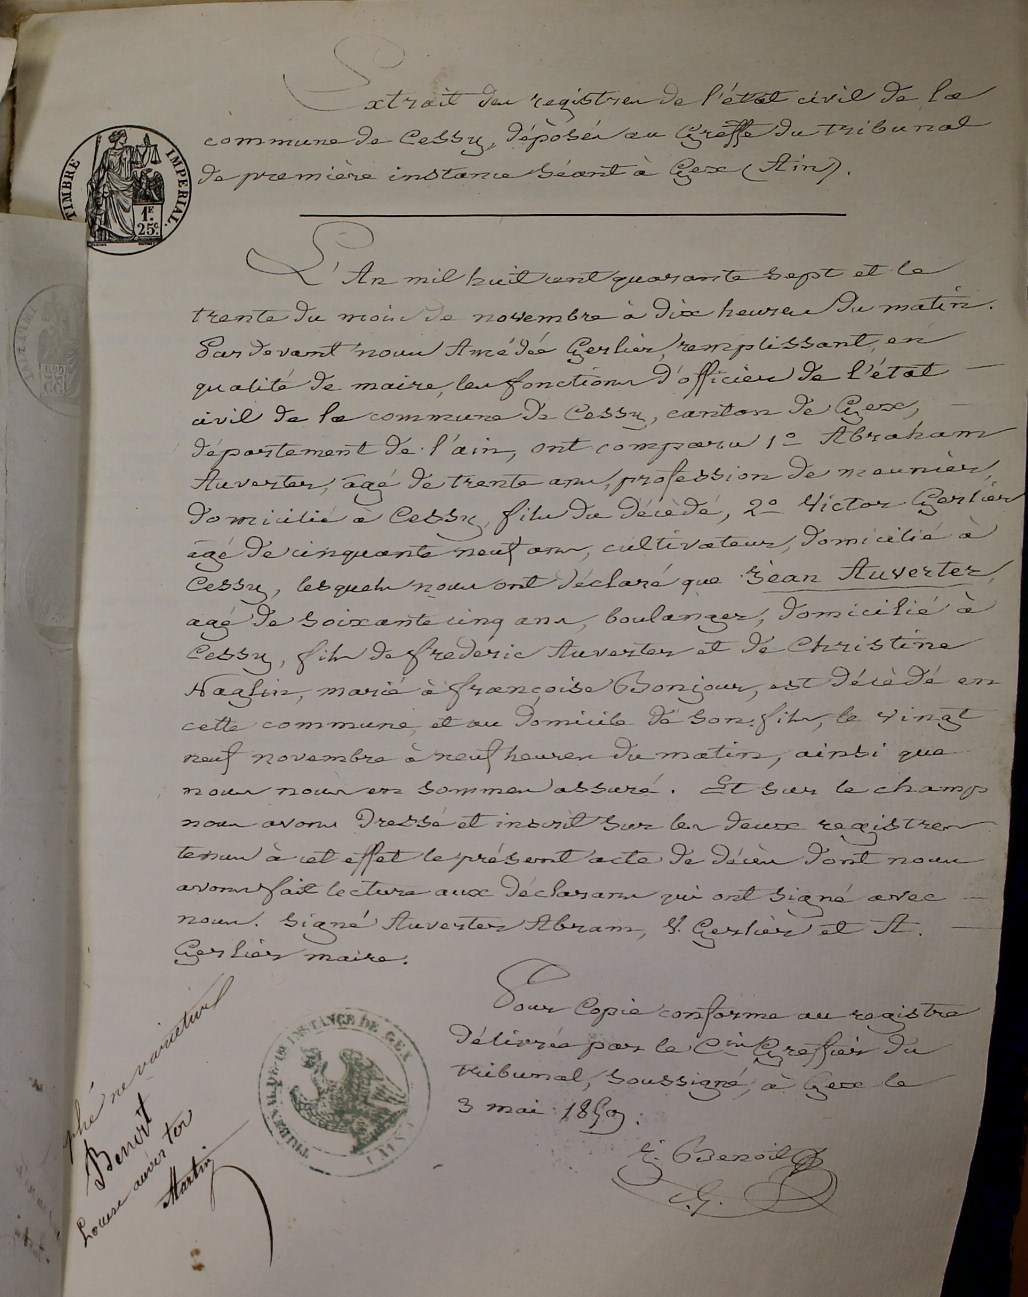 Extrait des registres de l'état civil de la
commune de Cessy, déposés au Greffe du tribunal
de première instance séant à Gex (Ain).
TIMBRE IMPERIAL
1F
25c.
L'An mil huit cent quarante sept et le
trente du mois de novembre à dix heures du matin.
Pardevant nous Amédée Gerlier, remplissant en
qualité de maire, les fonctions d'officier de l'état
civil de la commune de Cessy, canton de Gex,
département de l'ain, ont comparu 1° Abraham
Auverter, âgé de trente ans, profession de meunier,
domicilié à Cessy, fils du décédé, 2° Victor Gerlier
âgé de cinquante neuf ans, cultivateur, domicilié à
Cessy, lesquels nous ont déclaré que Jean Auverter,
agé de soixante cinq ans, boulanger, domicilié à
Cessy, fils de frederic Auverter et de Christine
Naglin, marié à françoise Bonjour, est décédé en
cette commune, et au domicile de son fils, le vingt
neuf novembre à neuf heures du matin, ainsi que
nous nous en sommes assuré. Et sur le champ
nous avons dressé et inscrit sur les deux registres
tenus à cet effet le présent acte de décès dont nous
avons fait lecture aux déclarans qui ont signé avec
nous. signé Auverter Abram, V. Gerlier et A.
Gerlier maire.
Pour Copie conforme au registre
délivrée par le Cmis Greffier du
tribunal, soussigné, à Gex le
3 mai 1859.
Benoit
C. G.
TRIBUNAL DE 1re INSTANCE DE GEX
(AIN)
phé ne varietur
Benoit
Louise auverter
Martin